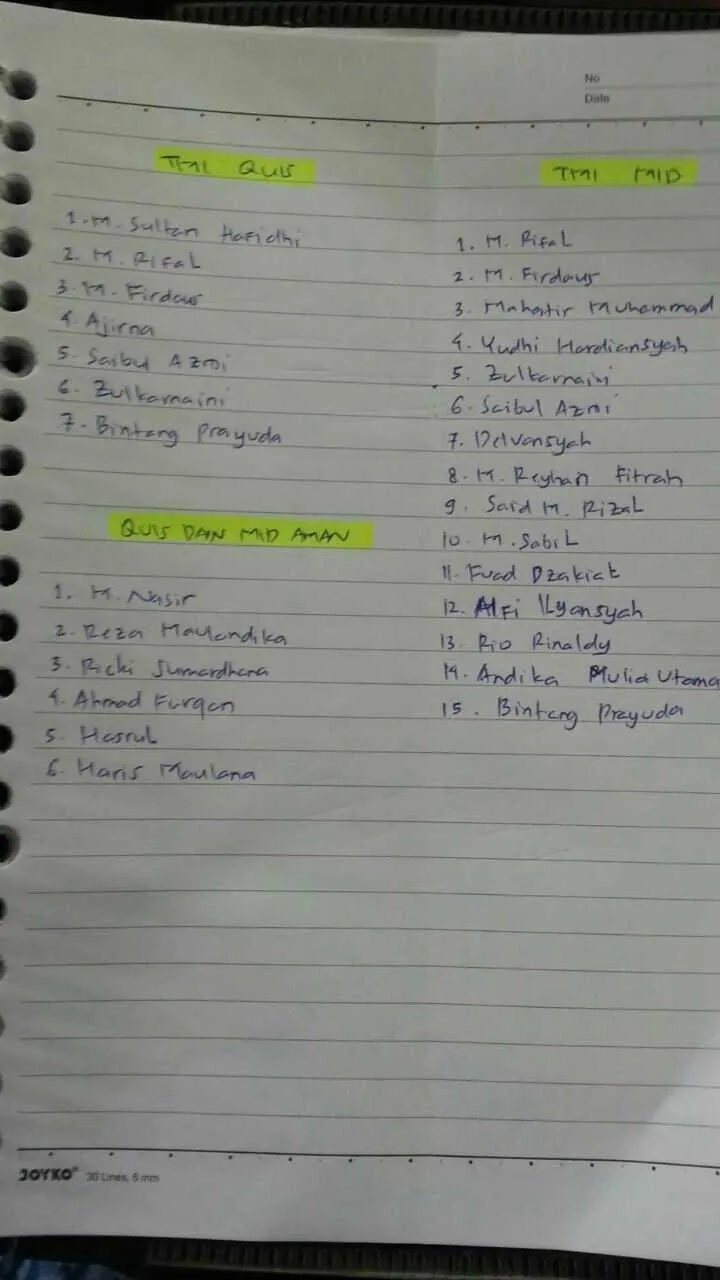 No
Date
TMI QUIS
1. M. Sultan Hafidhi
2. M. Rifal
3. M. Firdaus
4. Ajirna
5. Saibul Azmi
6. Zulkarnaini
7. Bintang Prayuda
QUIS DAN MID AMAN
1. M. Nasir
2. Reza Maulandika
3. Ricki Sumardhana
4. Ahmad Furqan
5. Hasrul
6. Haris Maulana
TMI MID
1. M. Rifal
2. M. Firdaus
3. Mahatir Muhammad
4. Yudhi Hardiansyah
5. Zulkarnaini
6. Saibul Azmi
7. Delvansyah
8. M. Reyhan Fitrah
9. Said M. Rizal
10. M. Sabil
11. Fuad Dzakiat
12. Alfi Ilyansyah
13. Rio Rinaldy
14. Andika Mulia Utama
15. Bintang Prayuda
JOYKO 30 Lines, 6 mm